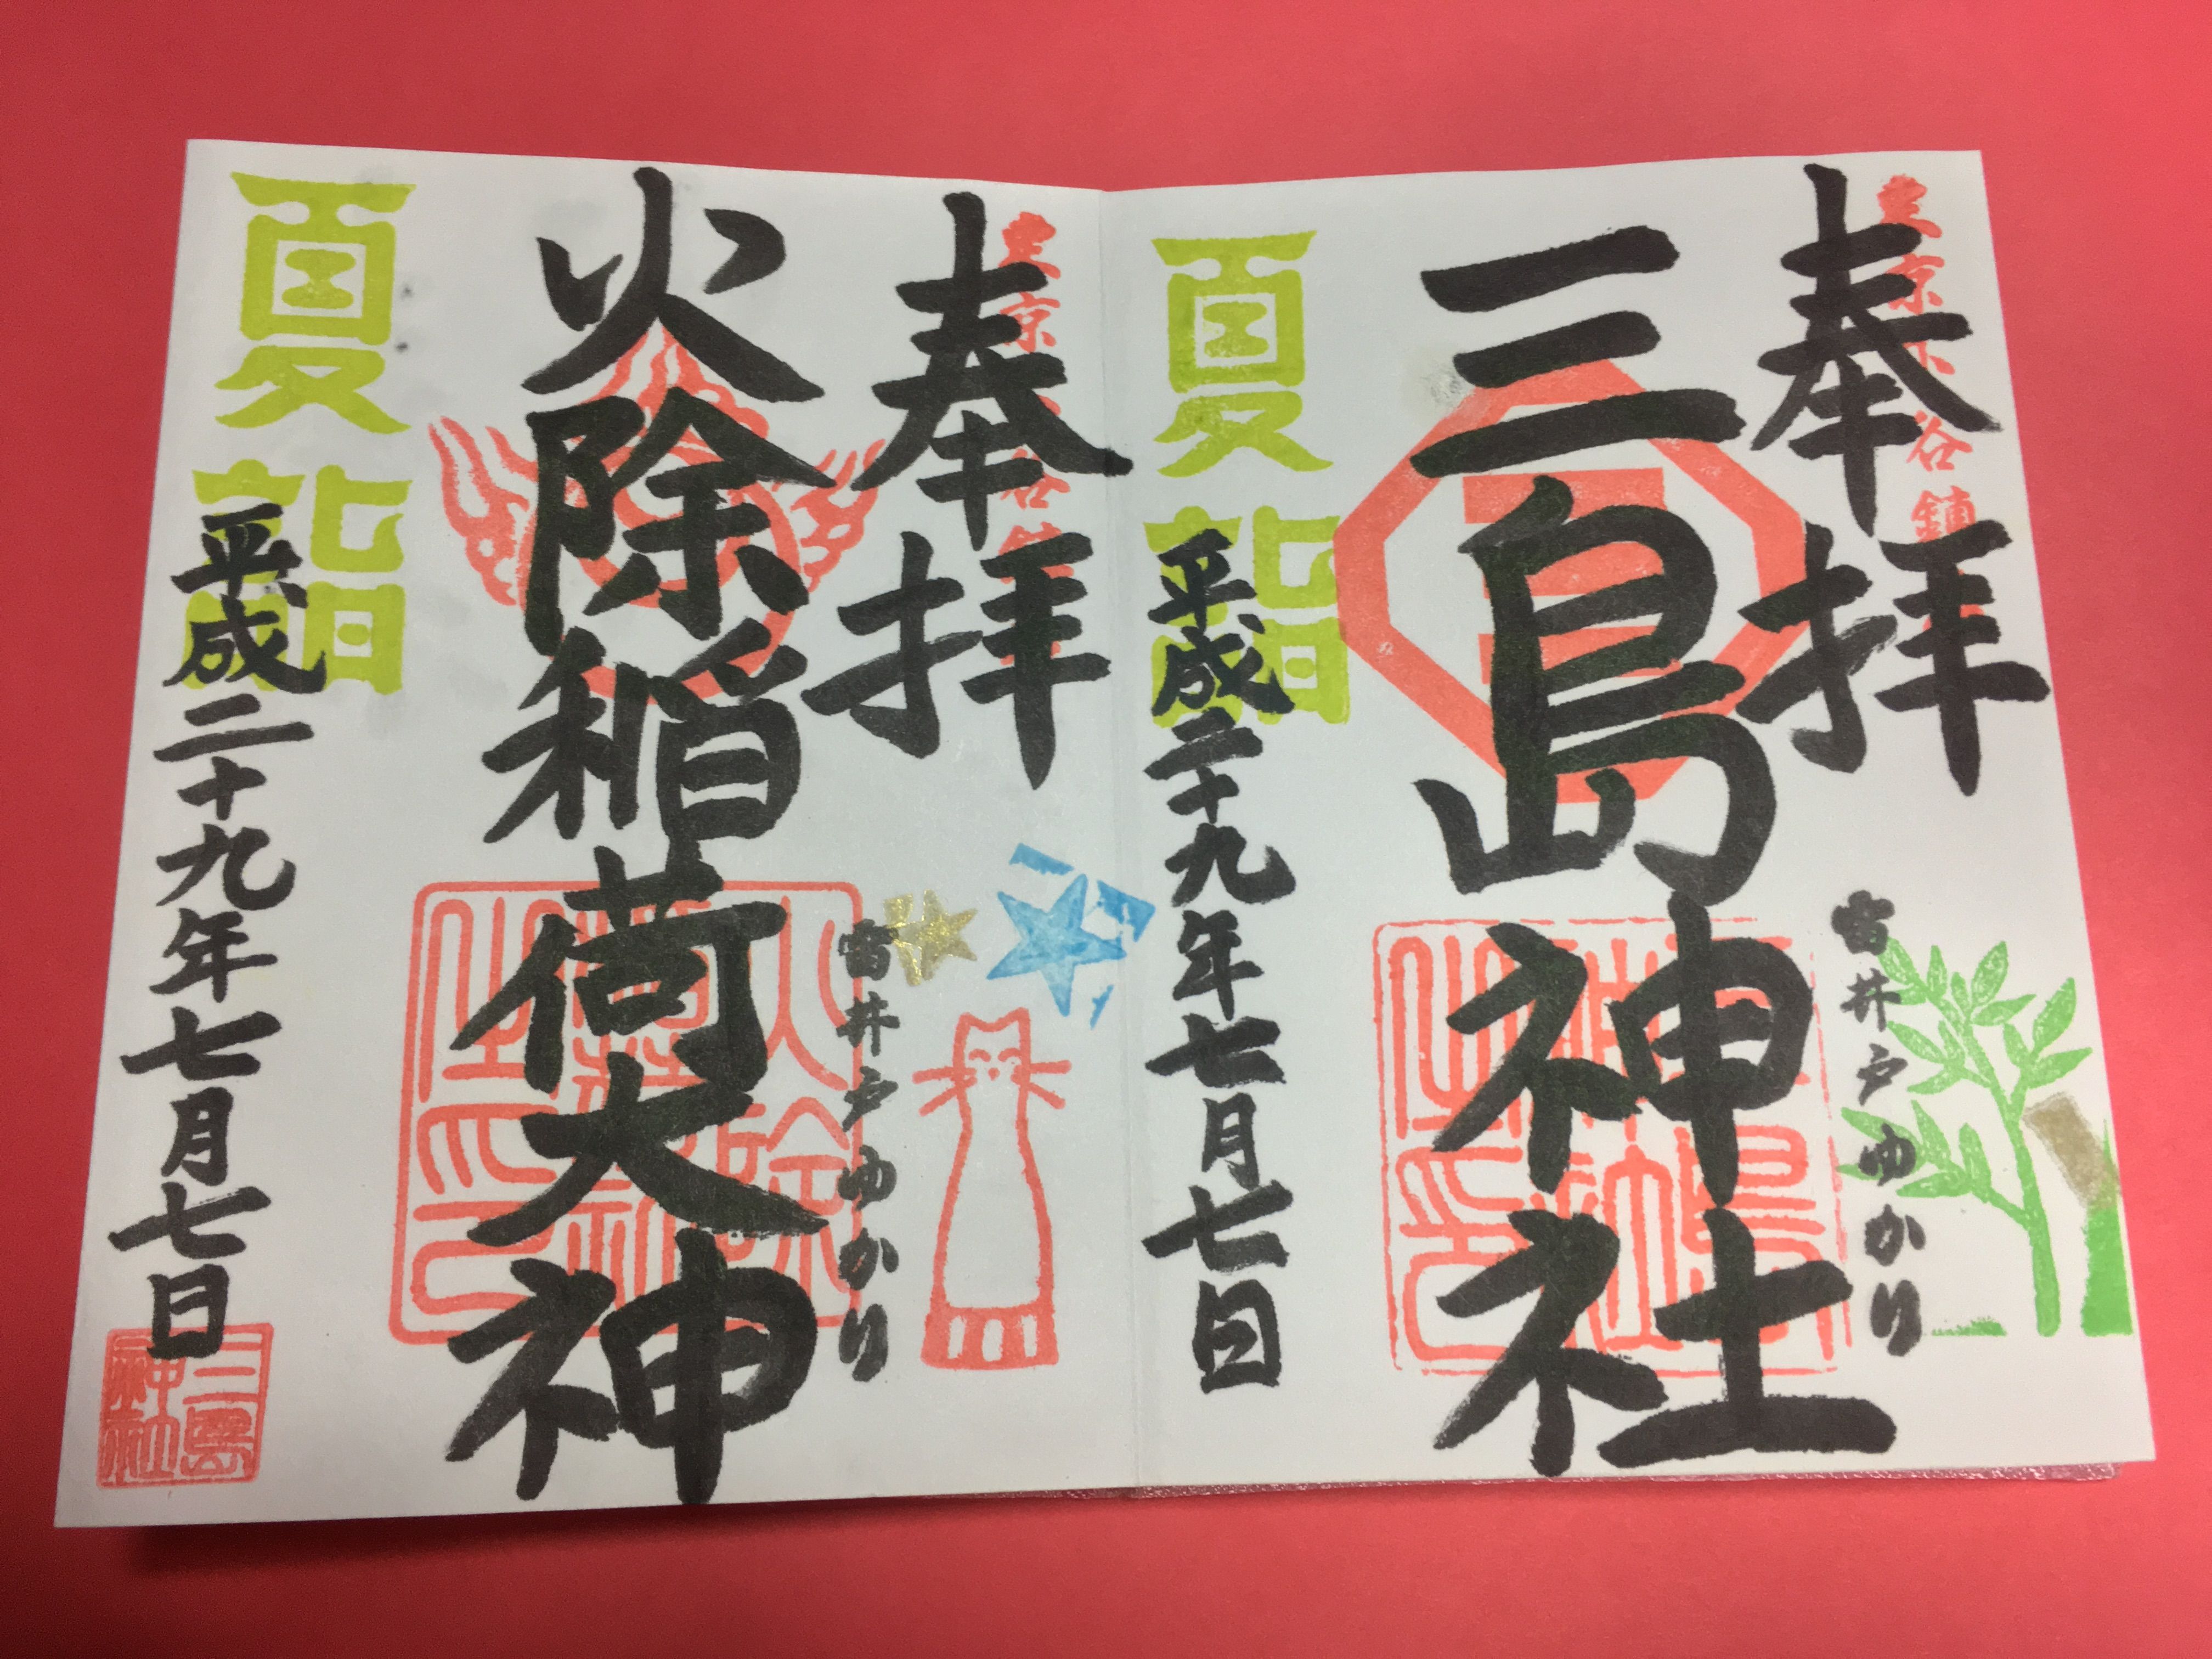 東京下谷鎮
奉拝
三島神社
雷井戸ゆかり
夏詣
平成二十九年七月七日
東京下谷鎮
奉拝
火除稲荷大神
雷井戸ゆかり
夏詣
平成二十九年七月七日
三島神社